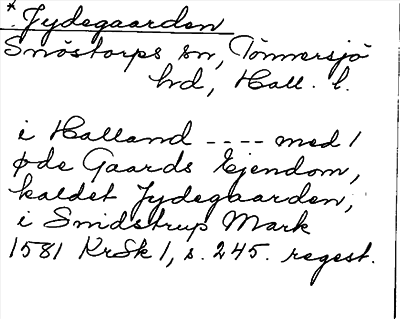 *Jydegaarden
Snöstorps sn, Tönnersjö
hd, Hall. l.
i Halland ---- med 1
øde Gaards Ejendom,
kaldet Jydegaarden,
i Smidstrup Mark
1581 KrSk 1, s. 245. regest.